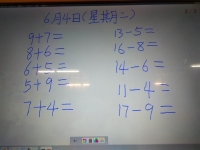 6月4日(星期二)
9+7= 13-5=
8+6= 16-8=
6+5= 14-6=
5+9= 11-4=
7+4= 17-9=